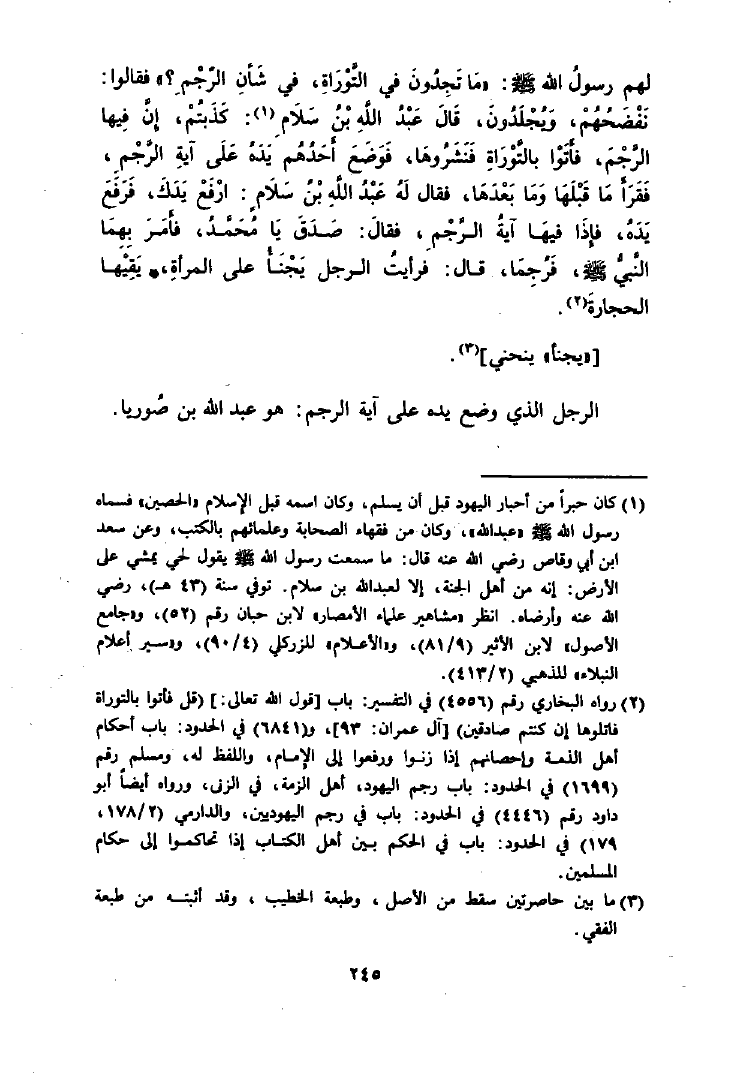 لهم رسولُ الله ﷺ: «مَا تَجِدُونَ في التَّوْرَاةِ، في شَأنِ الرَّجْمِ؟» فقالوا:
نَفْضَحُهُمْ، وَيُجْلَدُونَ، قَالَ عَبْدُ اللَّهِ بْنُ سَلَامٍ(١): كَذَبتُمْ، إِنَّ فِيها
الرَّجْمَ، فَأَتَوْا بالتَّوْرَاةِ فَنَشَرُوهَا، فَوَضَعَ أَحَدُهُم يَدَهُ عَلَى آيَةِ الرَّجْمِ،
فَقَرَأَ مَا قَبْلَهَا وَمَا بَعْدَهَا، فقال لَهُ عَبْدُ اللَّهِ بْنُ سَلَامٍ: ارْفَعْ يَدَكَ، فَرَفَعَ
يَدَهُ، فإذَا فيهَا آيَةُ الرَّجْمِ، فقالَ: صَدَقَ يَا مُحَمَّدُ، فأَمَرَ بِهِمَا
النَّبِيُّ ﷺ، فَرُجِمَا، قال: فرأيتُ الرجل يَجْنَأُ على المرأةِ، يَقِيْها
الحجارةَ(٢).
[«يجنأ» ينحني](٣).
الرجل الذي وضع يده على آية الرجم: هو عبد الله بن صُوريا.
(١) كان حبراً من أحبار اليهود قبل أن يسلم، وكان اسمه قبل الإسلام «الحصين» فسماه
رسول الله ﷺ «عبدالله»، وكان من فقهاء الصحابة وعلمائهم بالكتب، وعن سعد
ابن أبي وقاص رضي الله عنه قال: ما سمعت رسول الله ﷺ يقول لحي يمشي على
الأرض: إنه من أهل الجنة، إلا لعبدالله بن سلام. توفي سنة (٤٣ هـ)، رضي
الله عنه وأرضاه. انظر «مشاهير علماء الأمصار» لابن حبان رقم (٥٢)، و«جامع
الأصول» لابن الأثير (٨١/٩)، و«الأعلام» للزركلي (٩٠/٤)، و«سير أعلام
النبلاء» للذهبي (٤١٣/٢).
(٢) رواه البخاري رقم (٤٥٥٦) في التفسير: باب [قول الله تعالى:] (قل فأتوا بالتوراة
فاتلوها إن كنتم صادقين) [آل عمران: ٩٣]، و(٦٨٤١) في الحدود: باب أحكام
أهل الذمة وإحصانهم إذا زنوا ورفعوا إلى الإمام، واللفظ له، ومسلم رقم
(١٦٩٩) في الحدود: باب رجم اليهود، أهل الزمة، في الزنى، ورواه أيضاً أبو
داود رقم (٤٤٤٦) في الحدود: باب في رجم اليهوديين، والدارمي (١٧٨/٢،
١٧٩) في الحدود: باب في الحكم بين أهل الكتاب إذا تحاكموا إلى حكام
المسلمين.
(٣) ما بين حاصرتين سقط من الأصل، وطبعة الخطيب، وقد أثبته من طبعة
الفقي.
٢٤٥